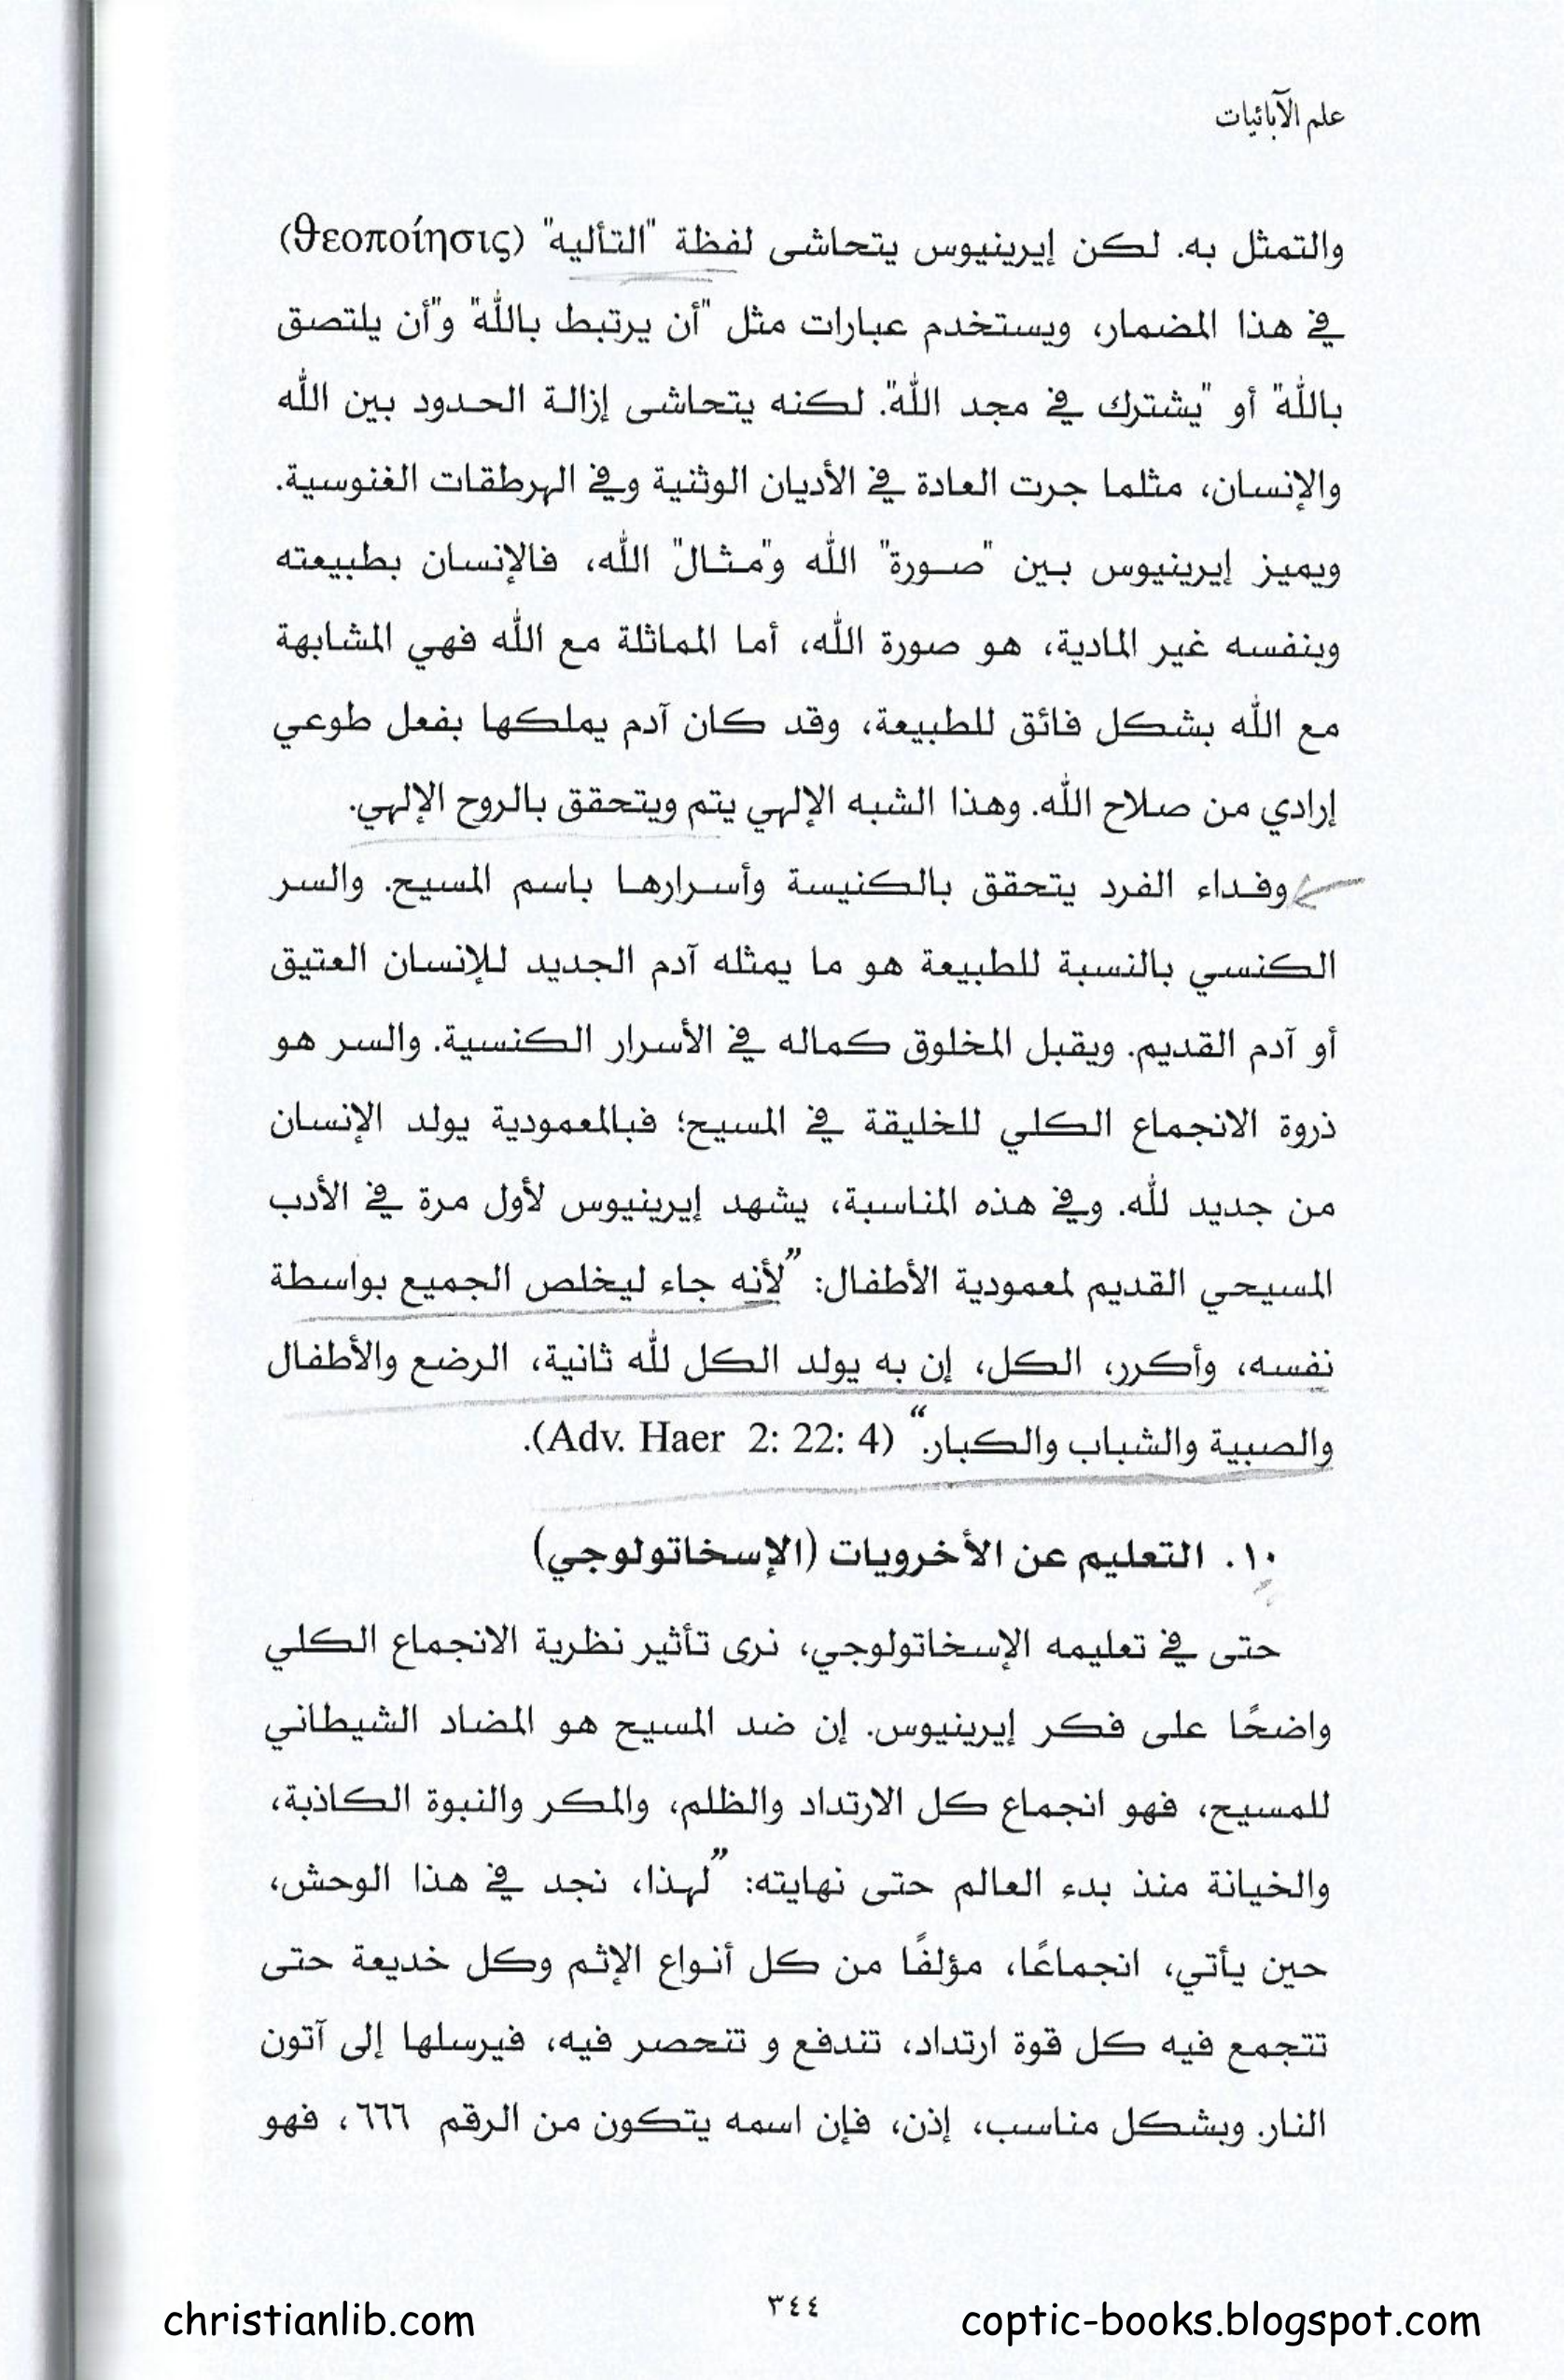 علم الآبائيات
والتمثل به. لكن إيرينيوس يتحاشى لفظة "التأليه" (θεοποίησις)
في هذا المضمار، ويستخدم عبارات مثل "أن يرتبط بالله" و"أن يلتصق
بالله" أو "يشترك في مجد الله". لكنه يتحاشى إزالة الحدود بين الله
والإنسان، مثلما جرت العادة في الأديان الوثنية وفي الهرطقات الغنوسية.
ويميز إيرينيوس بين "صورة" الله و"مثال" الله، فالإنسان بطبيعته
وبنفسه غير المادية، هو صورة الله، أما المماثلة مع الله فهي المشابهة
مع الله بشكل فائق للطبيعة، وقد كان آدم يملكها بفعل طوعي
إرادي من صلاح الله. وهذا الشبه الإلهي يتم ويتحقق بالروح الإلهي.
وفداء الفرد يتحقق بالكنيسة وأسرارها باسم المسيح. والسر
الكنسي بالنسبة للطبيعة هو ما يمثله آدم الجديد للإنسان العتيق
أو آدم القديم. ويقبل المخلوق كماله في الأسرار الكنسية. والسر هو
ذروة الانجماع الكلي للخليقة في المسيح؛ فبالمعمودية يولد الإنسان
من جديد لله. وفي هذه المناسبة، يشهد إيرينيوس لأول مرة في الأدب
المسيحي القديم لمعمودية الأطفال: ”لأنه جاء ليخلص الجميع بواسطة
نفسه، وأكرر، الكل، إن به يولد الكل لله ثانية، الرضع والأطفال
والصبية والشباب والكبار.“ (Adv. Haer 2: 22: 4).
١٠. التعليم عن الأخرويات (الإسخاتولوجي)
حتى في تعليمه الإسخاتولوجي، نرى تأثير نظرية الانجماع الكلي
واضحًا على فكر إيرينيوس. إن ضد المسيح هو المضاد الشيطاني
للمسيح، فهو انجماع كل الارتداد والظلم، والمكر والنبوة الكاذبة،
والخيانة منذ بدء العالم حتى نهايته: ”لهذا، نجد في هذا الوحش،
حين يأتي، انجماعًا، مؤلفًا من كل أنواع الإثم وكل خديعة حتى
تتجمع فيه كل قوة ارتداد، تندفع و تنحصر فيه، فيرسلها إلى آتون
النار. وبشكل مناسب، إذن، فإن اسمه يتكون من الرقم ٦٦٦، فهو
٣٤٤
christianlib.com
coptic-books.blogspot.com